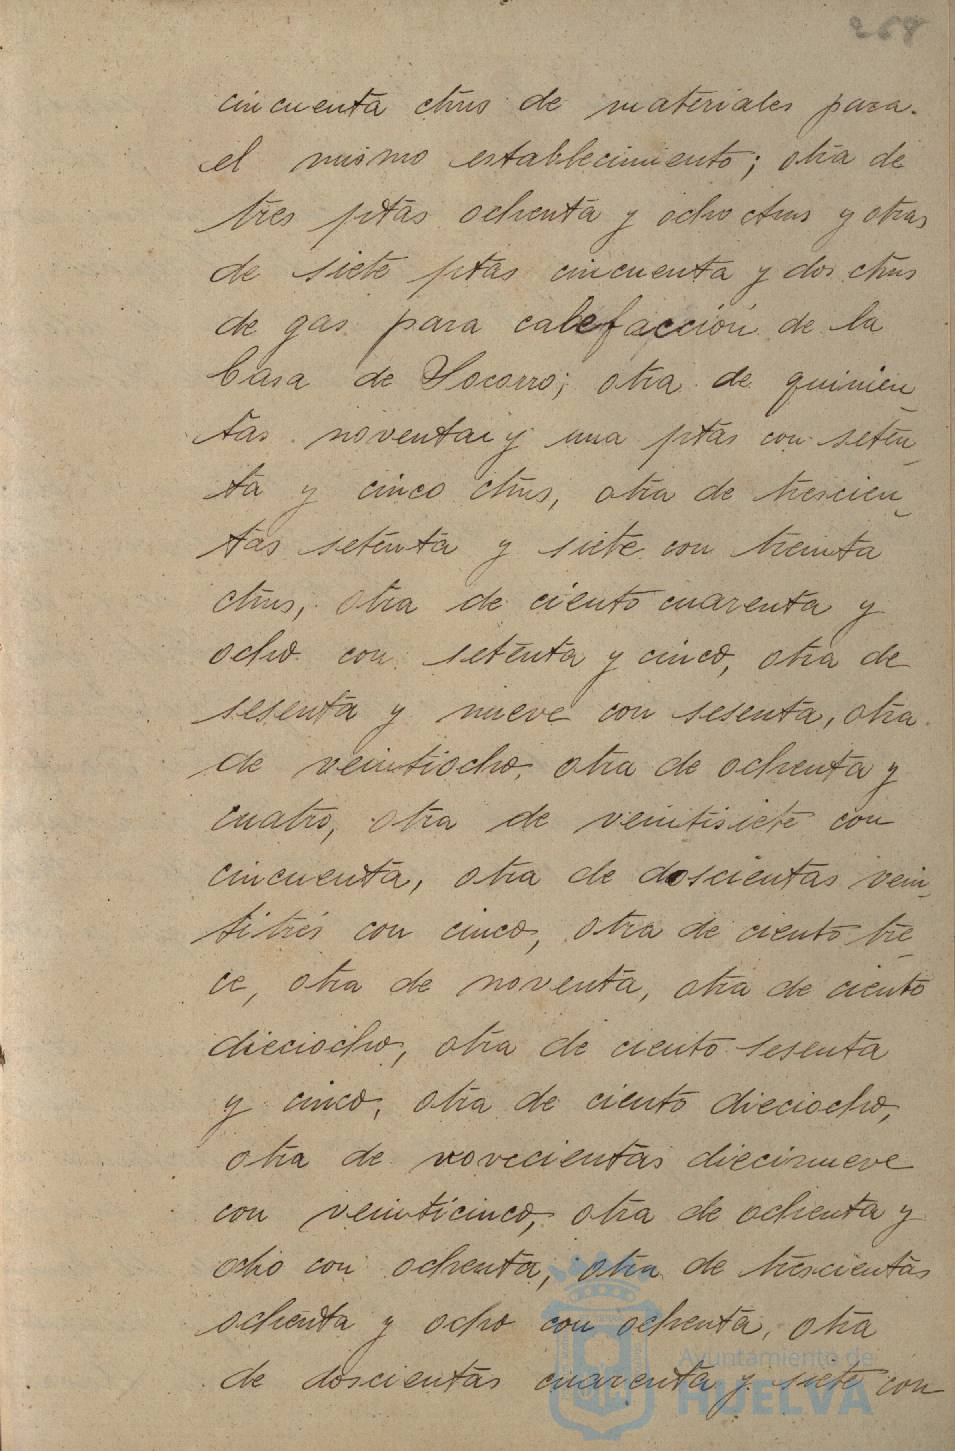 268
cincuenta ctms de materiales para
el mismo establecimiento; otra de
tres ptas ochenta y ocho ctms y otras
de siete ptas cincuenta y dos ctms
de gas para calefacción de la
Casa de Socorro; otra de quinien
tas noventa y una ptas con seten_
ta y cinco ctms, otra de trescien_
tas setenta y siete con treinta
ctms, otra de ciento cuarenta y
ocho con setenta y cinco, otra de
sesenta y nueve con sesenta, otra
de veintiocho, otra de ochenta y
cuatro, otra de veintisiete con
cincuenta, otra de doscientas vein_
titrés con cinco, otra de ciento tre_
ce, otra de noventa, otra de ciento
dieciocho, otra de ciento sesenta
y cinco, otra de ciento dieciocho,
otra de novecientas diecinueve
con veinticinco, otra de ochenta y
ocho con ochenta, otra de trescientas
ochenta y ocho con ochenta, otra
de doscientas cuarenta y siete con
Ayuntamiento de
HUELVA